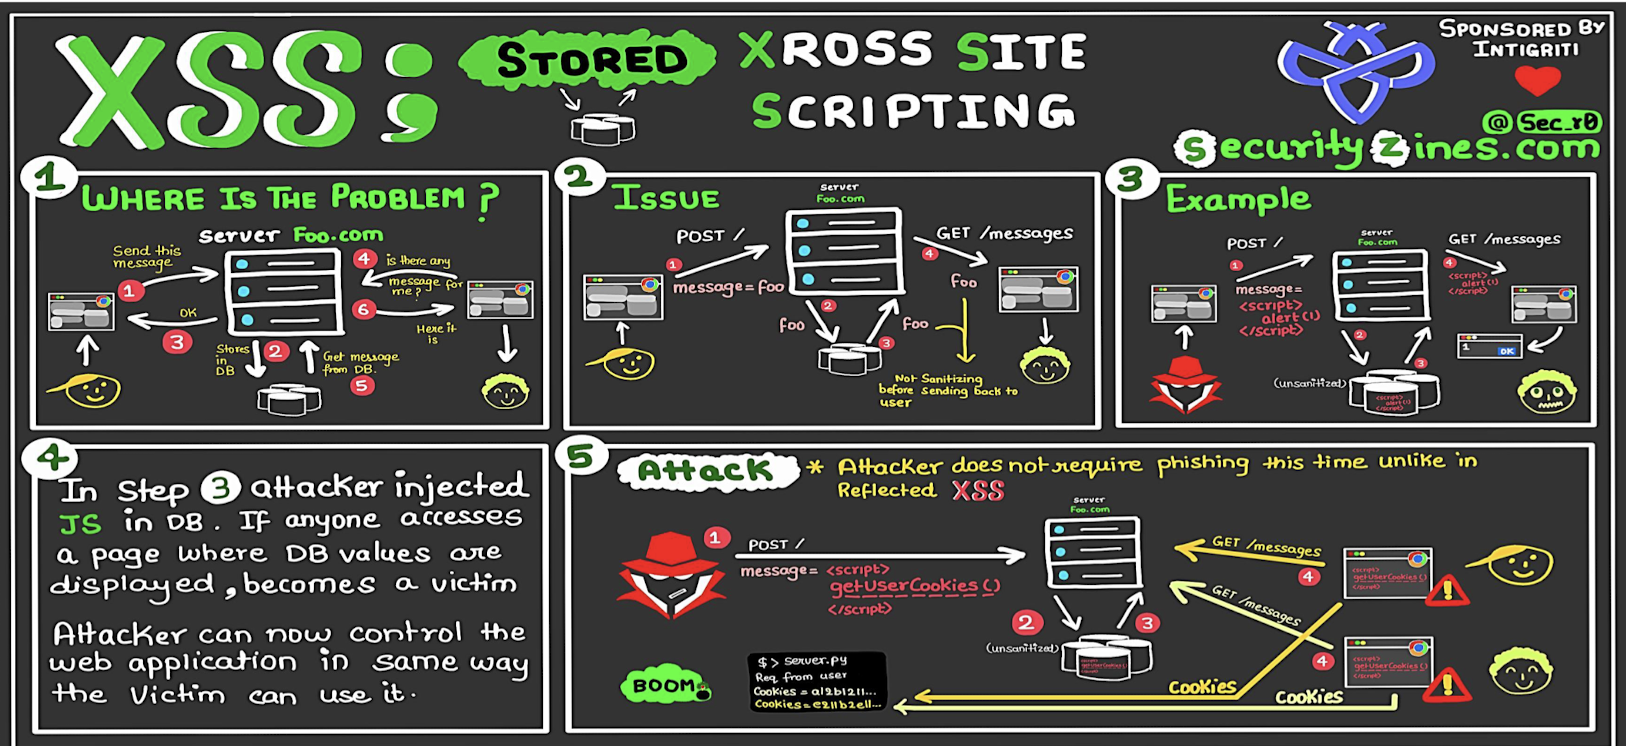 XSS;
STORED
XROSS SITE
SCRIPTING
SPONSORED BY
INTIGRITI
@ Sec_r0
Securityzines.com
1
WHERE IS THE PROBLEM ?
Server Foo.com
Send this
message
1
OK
3
Stores
in
DB
2
Get message
from DB.
5
4
is there any
message for
me?
6
Here it
is
2
ISSUE
Server
Foo.com
POST /
1
message=foo
2
foo
3
foo
GET /messages
4
foo
Not Sanitizing
before sending back to
user
3
Example
Server
Foo.com
POST /
1
message=
<script>
alert(1)
</script>
2
(unsanitized)
<script>
alert(1)
</script>
3
GET /messages
4
<script>
alert(1)
</script>
1
OK
4
In Step 3 attacker injected
JS in DB. If anyone accesses
a page where DB values are
displayed, becomes a victim
Attacker can now control the
web application in same way
the Victim can use it.
5
Attack
* Attacker does not require phishing this time unlike in
Reflected XSS
Server
Foo.com
1
POST /
message= <script>
getUserCookies()
</script>
2
(unsanitized)
3
<script>
getUserCookies()
</script>
GET /messages
4
<script>
getUserCookies()
</script>
GET /messages
4
<script>
getUserCookies()
</script>
Cookies
Cookies
BOOM
$ > server.py
Req from user
Cookies = a12b1211...
Cookies = e211b2e11...